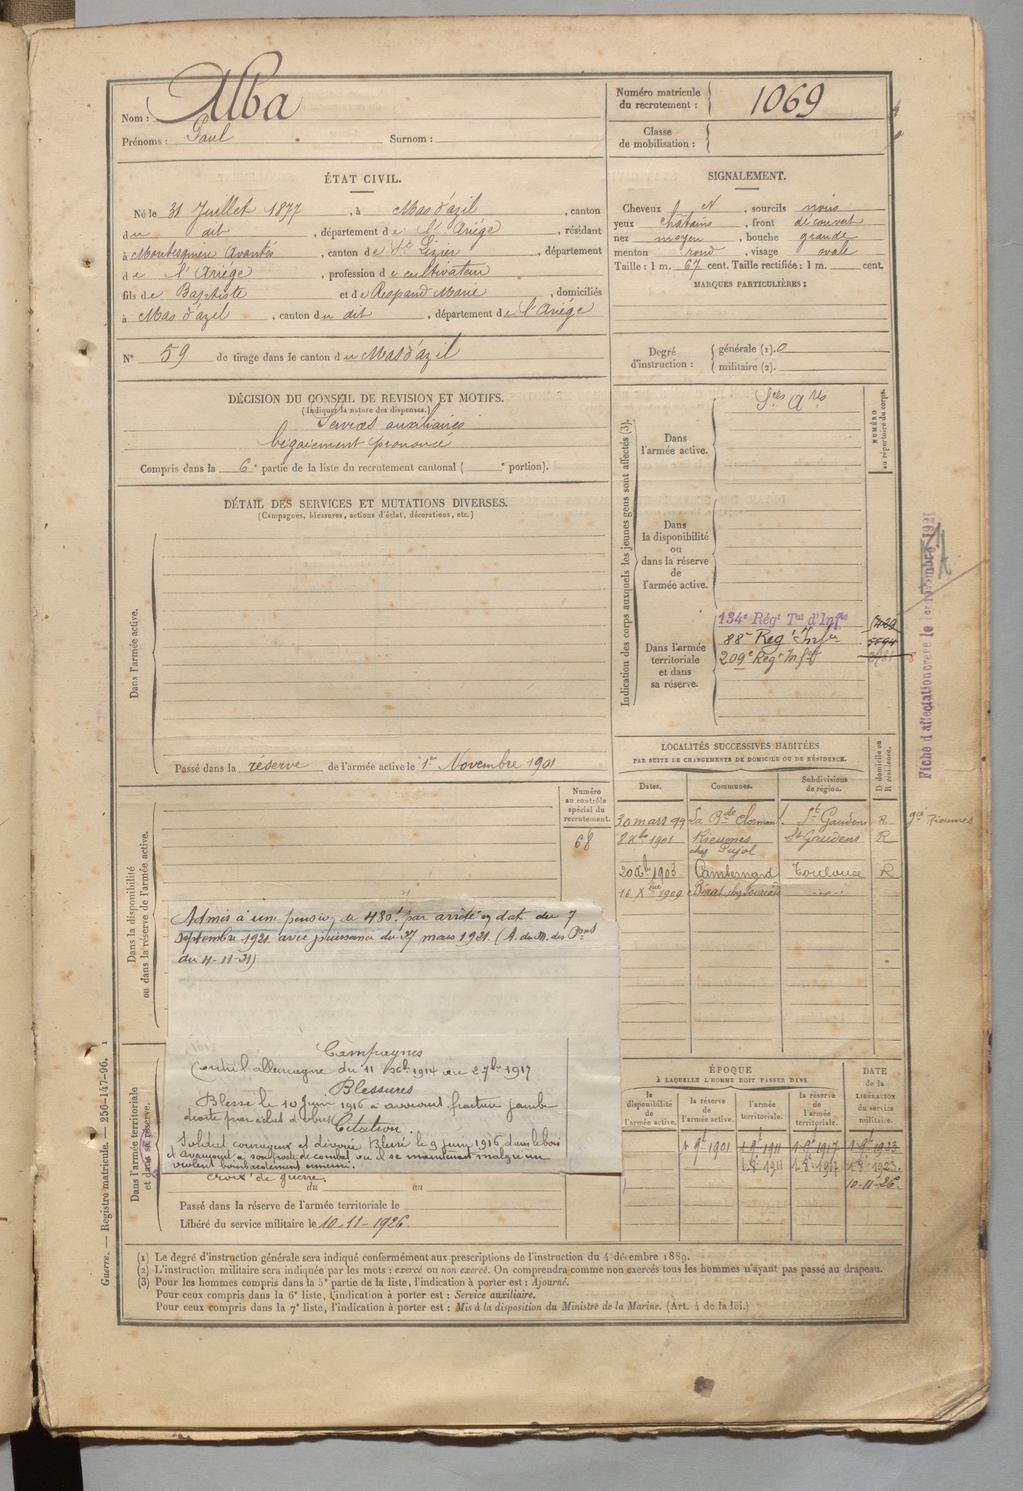 Nom : Alba
Prénoms : Paul Surnom :
Numéro matricule
du recrutement : 1069
Classe
de mobilisation :
ÉTAT CIVIL.
Né le 31 Juillet 1877, à Mas d'azil, canton
du dit, département de l'Ariége, résidant
à Montesquieu Avantés, canton de St Lizier, département
de l'Ariége, profession de cultivateur
fils de Baptiste et de Respaud Marie, domiciliés
à Mas d'azil, canton du dit, département de l'Ariége
N° 59 de tirage dans le canton du Mas d'azil
SIGNALEMENT.
Cheveux N, sourcils noirs
yeux châtains, front découvert
nez moyen, bouche grande
menton rond, visage ovale
Taille : 1 m. 67 cent. Taille rectifiée : 1 m. cent.
MARQUES PARTICULIÈRES :
Degré
d'instruction :
générale (1). 0
militaire (2).
DÉCISION DU CONSEIL DE REVISION ET MOTIFS.
(Indiquer la nature des dispenses.)
Services auxiliaires
bégaiement prononcé
Compris dans la 6e partie de la liste du recrutement cantonal ( e portion).
DÉTAIL DES SERVICES ET MUTATIONS DIVERSES.
(Campagnes, blessures, actions d'éclat, décorations, etc.)
Dans l'armée active.
Passé dans la réserve de l'armée active le 1er Novembre 1901
Indication des corps auxquels les jeunes gens sont affectés (3).
NUMÉRO
au répertoire du corps.
Dans
l'armée active.
Sces Ares
Dans
la disponibilité
ou
dans la réserve
de
l'armée active.
Dans l'armée
territoriale
et dans
sa réserve.
134e Régt Tal d'Infie
88e Regt Infie
209e Regt Infie
Fiche d'affectation créée le 1er novembre 1921
LOCALITÉS SUCCESSIVES HABITÉES
PAR SUITE DE CHANGEMENTS DE DOMICILE OU DE RÉSIDENCE.
Dates. Communes. Subdivisions
de région. D domicile ou
R résidence.
30 mars 99 La Bde St Gaudens R
1901 Rieumes St Gaudens R
chez Pujol
1903 Cambernard Toulouse R
16 Xbre 1909
Dans la disponibilité
ou dans la réserve de l'armée active.
Numéro
au contrôle
spécial du
recrutement.
68
Admis à une pension de 480f par arrêté en date du 7
septembre 1921 avec jouissance du 27 mars 1921. (A. du M. des Pons
du 4-11-21)
Campagnes
Contre l'allemagne du 11 1914 au 2 7bre 1917
Blessures
Blessé le 10 juin 1916 à avocourt fracture jambe
droite par éclat d'obus
Citation
Soldat courageux et dévoué. Blessé le 9 juin 1916 dans le bois
d'avocourt à son poste de combat où il se maintenait malgré un
violent bombardement ennemi.
croix de guerre.
Dans l'armée territoriale
et dans sa réserve.
du au
Passé dans la réserve de l'armée territoriale le
Libéré du service militaire le 10-11-1926.
ÉPOQUE
À LAQUELLE L'HOMME DOIT PASSER DANS
DATE
de la
LIBÉRATION
du service
militaire.
la
disponibilité
de
l'armée active.
la réserve
de
l'armée active.
l'armée
territoriale.
la réserve
de
l'armée
territoriale.
1 9bre 1901 1 9bre 1911 1 9bre 1917 1 9bre 1923
1.8. 1911 1.8. 1917 1.8. 1923
10-11-26.
(1) Le degré d'instruction générale sera indiqué conformément aux prescriptions de l'instruction du 4 décembre 1889.
(2) L'instruction militaire sera indiquée par les mots : exercé ou non exercé. On comprendra comme non exercés tous les hommes n'ayant pas passé au drapeau.
(3) Pour les hommes compris dans la 5e partie de la liste, l'indication à porter est : Ajourné.
Pour ceux compris dans la 6e liste, l'indication à porter est : Service auxiliaire.
Pour ceux compris dans la 7e liste, l'indication à porter est : Mis à la disposition du Ministre de la Marine. (Art. 4 de la loi.)
Guerre. — Registre matricule. — 256-147-96.